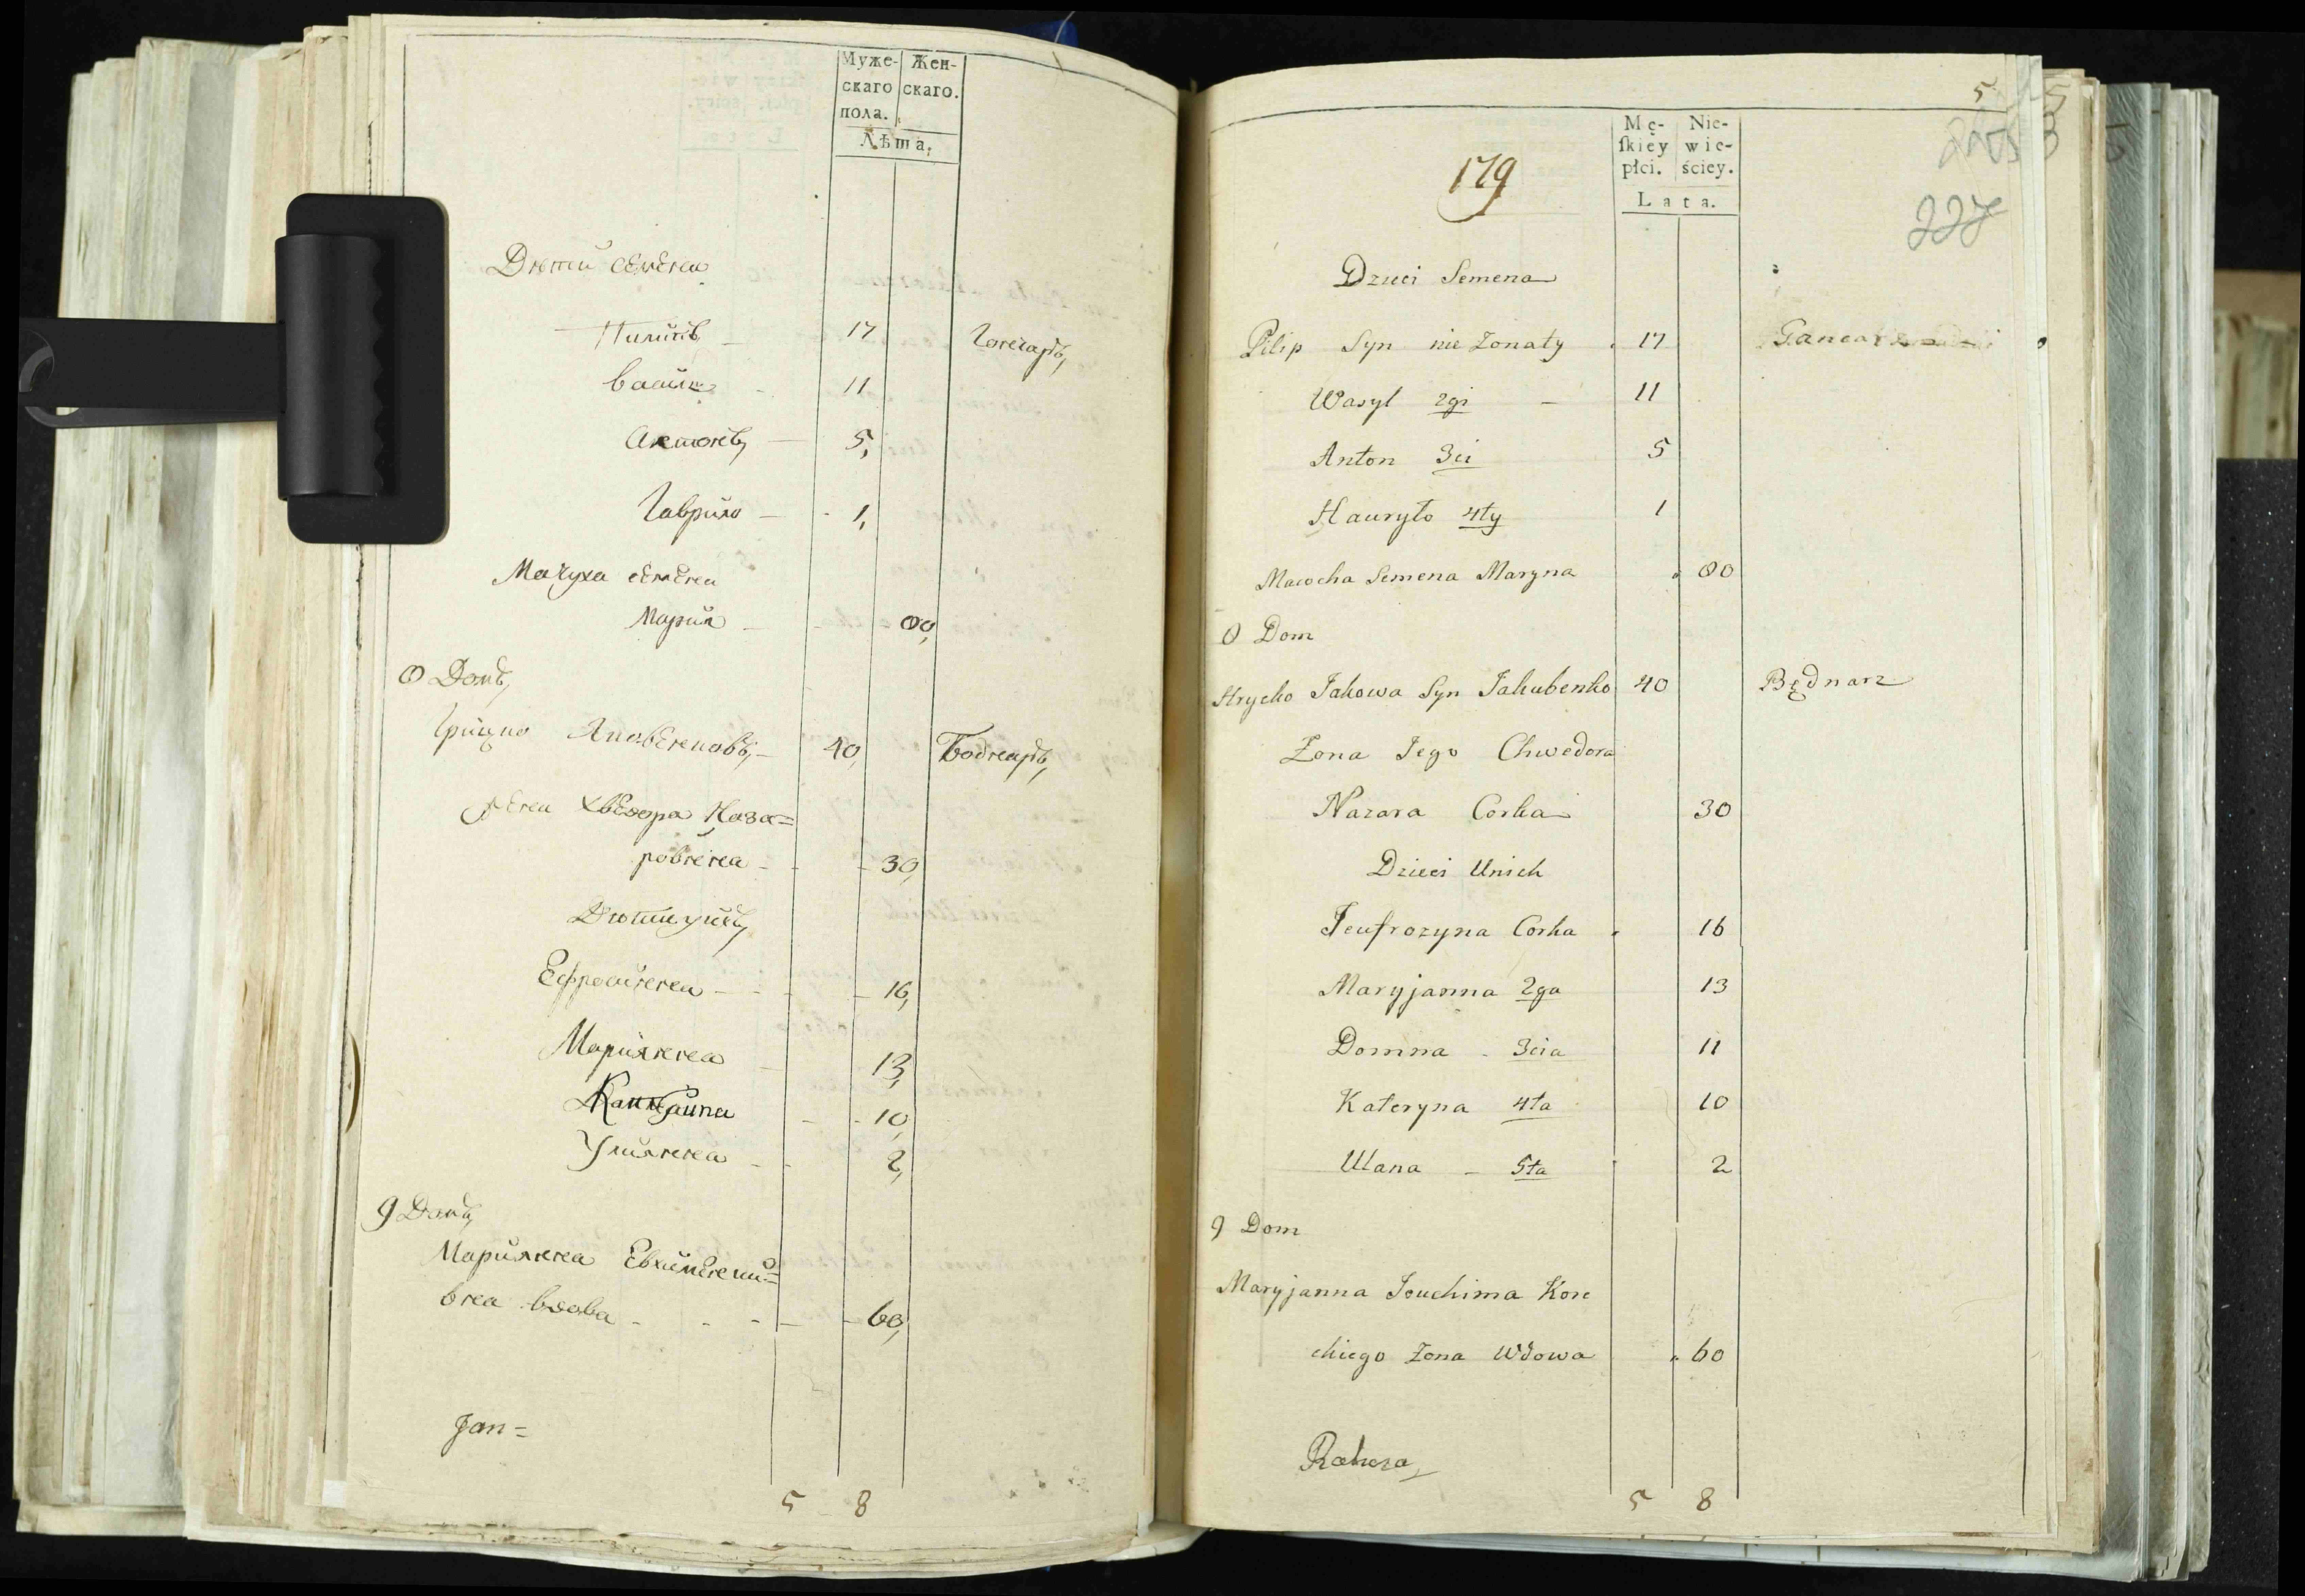 Муже-
скаго
пола.
Жен-
скаго.
Лѣта.
Дѣти Семена
Пилипъ - 17 Гончаръ,
Василь - 11
Антонъ, - 5,
Гаврило - 1,
Мачуха Семена
Мария - 80,
8 Домъ,
Грицко Яковенковъ, - 40, Боднаръ,
жена Хведора Наза=
ровнена - 30,
Дѣти ихъ,
Ефросинна - 16,
Марианна 13,
Катерина - 10,
Улианна - 2,
9 Домъ,
Марианна Евхименкы=
вна вдова - 60,
Jan=
5 8
5
227
179
Mę-
ſkiéy
płci.
Nie-
wie-
ściey.
Lata.
Dzieci Semena
Pilip Syn nie Zonaty 17 Gancarz
Wasyl 2gi - 11
Anton 3ci 5
Hauryło 4ty 1
Macocha Semena Maryna 80
8 Dom
Hrycko Jakowa Syn Jakubenko 40 Będnarz
Zona Jego Chwedora
Nazara Corka 30
Dzieci Unich
Jeufrozyna Corka 16
Maryjanna 2ga 13
Domna - 3cia 11
Kateryna 4ta 10
Ulana - 5ta 2
9 Dom
Maryjanna Jouchima Kore
ckiego Zona Wdowa 60
5 8